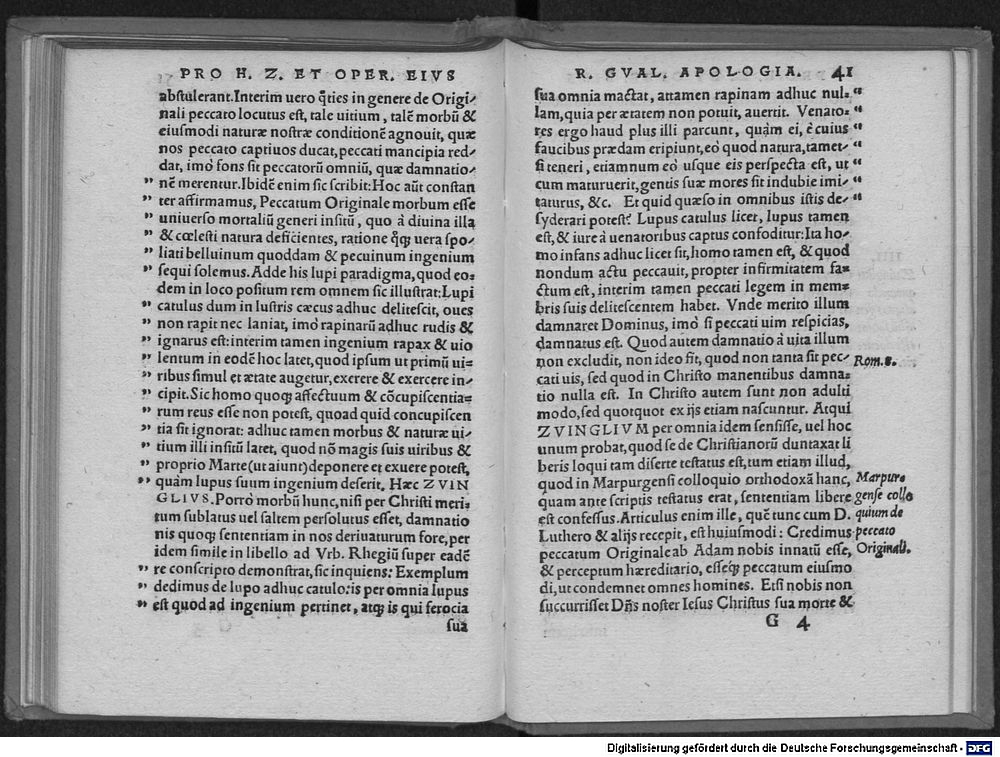 PRO H. Z. ET OPER. EIVS
abstulerant. Interim uero q̃ties in genere de Origi-
nali peccato locutus est, tale uitium, talẽ morbũ &
eiusmodi naturæ nostræ conditionẽ agnouit, quæ
nos peccato captiuos ducat, peccati mancipia red-
dat, imò fons sit peccatorũ omniũ, quæ damnatio-
nẽ merentur. Ibidẽ enim sic scribit: Hoc aũt constan
ter affirmamus, Peccatum Originale morbum esse
uniuerso mortaliũ generi insitũ, quo à diuina illa
& cœlesti natura deficientes, ratione q̃ꝫ uera spo-
liati belluinum quoddam & pecuinum ingenium
sequi solemus. Adde his lupi paradigma, quod eo-
dem in loco positum rem omnem sic illustrat: Lupi
catulus dum in lustris cæcus adhuc delitescit, oues
non rapit nec laniat, imò rapinarũ adhuc rudis &
ignarus est: interim tamen ingenium rapax & uio
lentum in eodẽ hoc latet, quod ipsum ut primũ ui=
ribus simul et ætate augetur, exerere & exercere in-
cipit. Sic homo quoqꝫ affectuum & cõcupiscentia=
rum reus esse non potest, quoad quid concupiscen
tia sit ignorat: adhuc tamen morbus & naturæ ui-
tium illi insitũ latet, quod nõ magis suis uiribus &
proprio Marte (ut aiunt) deponere et exuere potest,
quàm lupus suum ingenium deserit. Hæc ZVIN
GLIVS. Porrò morbũ hunc, nisi per Christi meri=
tum sublatus uel saltem persolutus esset, damnatio
nis quoqꝫ sententiam in nos deriuaturum fore, per
idem simile in libello ad Vrb. Rhegiũ super eadẽ
re conscripto demonstrat, sic inquiens: Exemplum
dedimus de lupo adhuc catulo: is per omnia lupus
est quod ad ingenium pertinet, atqꝫ is qui ferocia
sua
R. GVAL. APOLOGIA. 41
sua omnia mactat, attamen rapinam adhuc nul=
lam, quia per ætatem non potuit, auertit. Venato=
res ergo haud plus illi parcunt, quàm ei, è cuius
faucibus prædam eripiunt, eò quod natura, tamet-
si teneri, etiamnum eò usque eis perspecta est, ut
cum maturuerit, gentis suæ mores sit indubie imi-
taturus, &c. Et quid quæso in omnibus istis de-
syderari potest? Lupus catulus licet, lupus tamen
est, & iure à uenatoribus captus confoditur: Ita ho-
mo infans adhuc licet sit, homo tamen est, & quod
nondum actu peccauit, propter infirmitatem fa-
ctum est, interim tamen peccati legem in mem=
bris suis delitescentem habet. Vnde merito illum
damnaret Dominus, imò si peccati uim respicias,
damnatus est. Quod autem damnatio à uita illum
non excludit, non ideo fit, quod non tanta sit pec-
cati uis, sed quod in Christo manentibus damna=
tio nulla est. In Christo autem sunt non adulti
modo, sed quotquot ex ijs etiam nascuntur. Atqui
ZVINGLIVM per omnia idem sensisse, uel hoc
unum probat, quod se de Christianorũ duntaxat li
beris loqui tam diserte testatus est, tum etiam illud,
quod in Marpurgensi colloquio orthodoxã hanc,
quam ante scriptis testatus erat, sententiam libere
est confessus. Articulus enim ille, quẽ tunc cum D.
Luthero & alijs recepit, est huiusmodi: Credimus
peccatum Originale ab Adam nobis innatũ esse,
& perceptum hæreditario, esseqꝫ peccatum eiusmo
di, ut condemnet omnes homines. Etsi nobis non
succurrisset Dñs noster Iesus Christus sua morte &
G 4
Rom. 8.
Marpur=
gense collo
quium de
peccato
Originali.
Digitalisierung gefördert durch die Deutsche Forschungsgemeinschaft - DFG